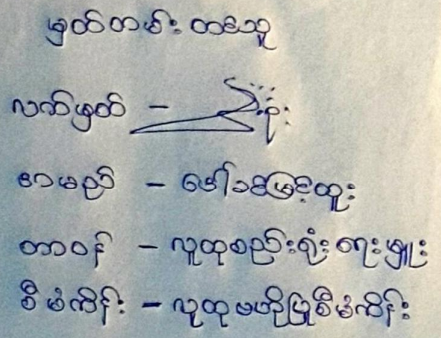 မှတ်တမ်းတင်သူ
လက်မှတ် -
အမည် - ဒေါ်ခင်မြင့်ထူး
တာဝန် - လူထုစည်းရုံးရေးမှူး
စီမံကိန်း - လူထုဗဟိုပြုစီမံကိန်း